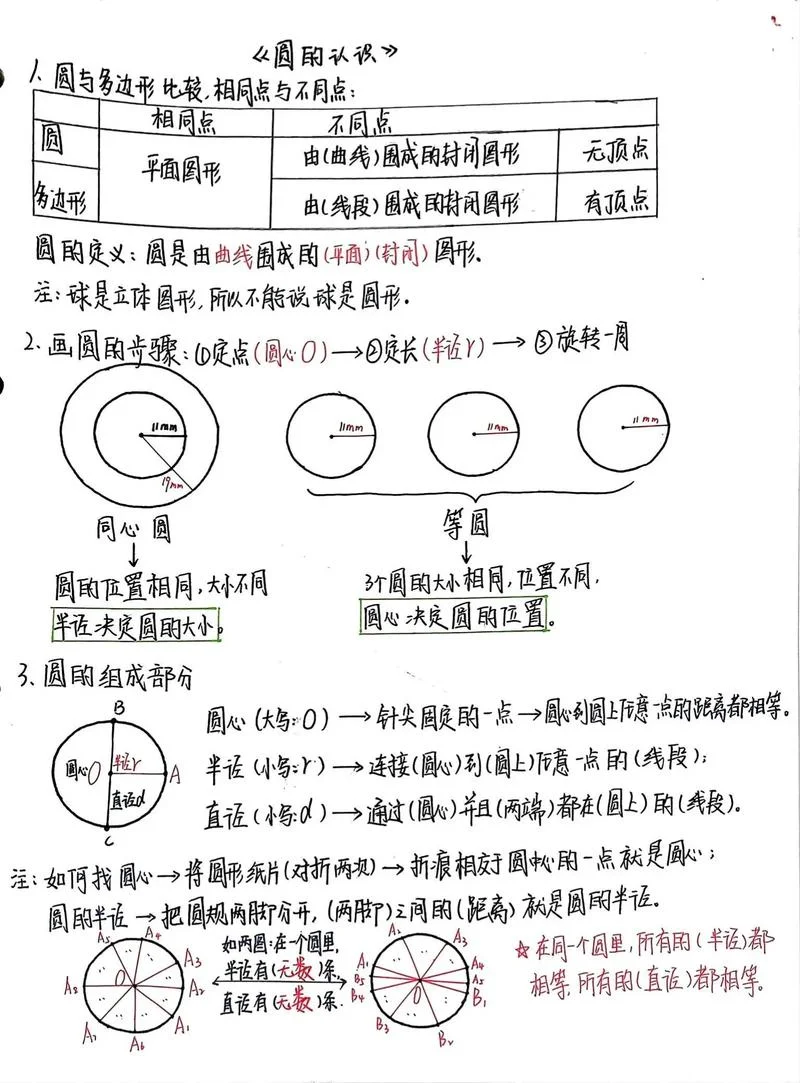 《圆的认识》
1、圆与多边形比较,相同点与不同点:
相同点 不同点
圆 平面图形 由(曲线)围成的封闭图形 无顶点
多边形 由(线段)围成的封闭图形 有顶点
圆的定义:圆是由曲线围成的(平面)(封闭)图形.
注:球是立体图形,所以不能说球是圆形.
2、画圆的步骤:①定点(圆心O)→②定长(半径r)→③旋转一周
11mm 11mm 11mm 11mm
19mm
同心圆 等圆
圆的位置相同,大小不同 3个圆的大小相同,位置不同,
半径决定圆的大小。 圆心决定圆的位置。
3、圆的组成部分
B
圆心(大写:O)→针尖固定的一点→圆心到圆上任意一点的距离都相等。
圆心O 半径r A
半径(小写:r)→连接(圆心)到(圆上)任意一点的(线段);
直径d
直径(小写:d)→通过(圆心)并且(两端)都在(圆上)的(线段)。
C
注:如何找圆心→将圆形纸片(对折两次)→折痕相交于圆中心的一点就是圆心;
圆的半径→把圆规两脚分开,(两脚)之间的(距离)就是圆的半径。
A5 A4 A3 A2 A1 A6 A7 A8 O
如两图:在一个圆里,
半径有(无数)条,
直径有(无数)条.
A2 A3 A1 A4 B5 A5 B4 B1 B3 B2 O
☆在同一个圆里,所有的(半径)都
相等,所有的(直径)都相等。